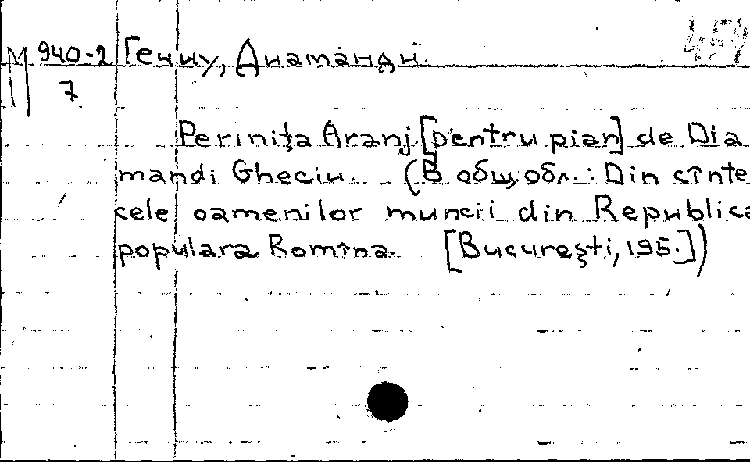 М 940-2 Гечиу, Диаманди. 454
7
Perinița Aranj. [pentru pian] de Dia
mandi Gheciu. (В общ. обл.: Din cînte
cele oamenilor muncii din Republica
populara Romîna. [București, 195.])